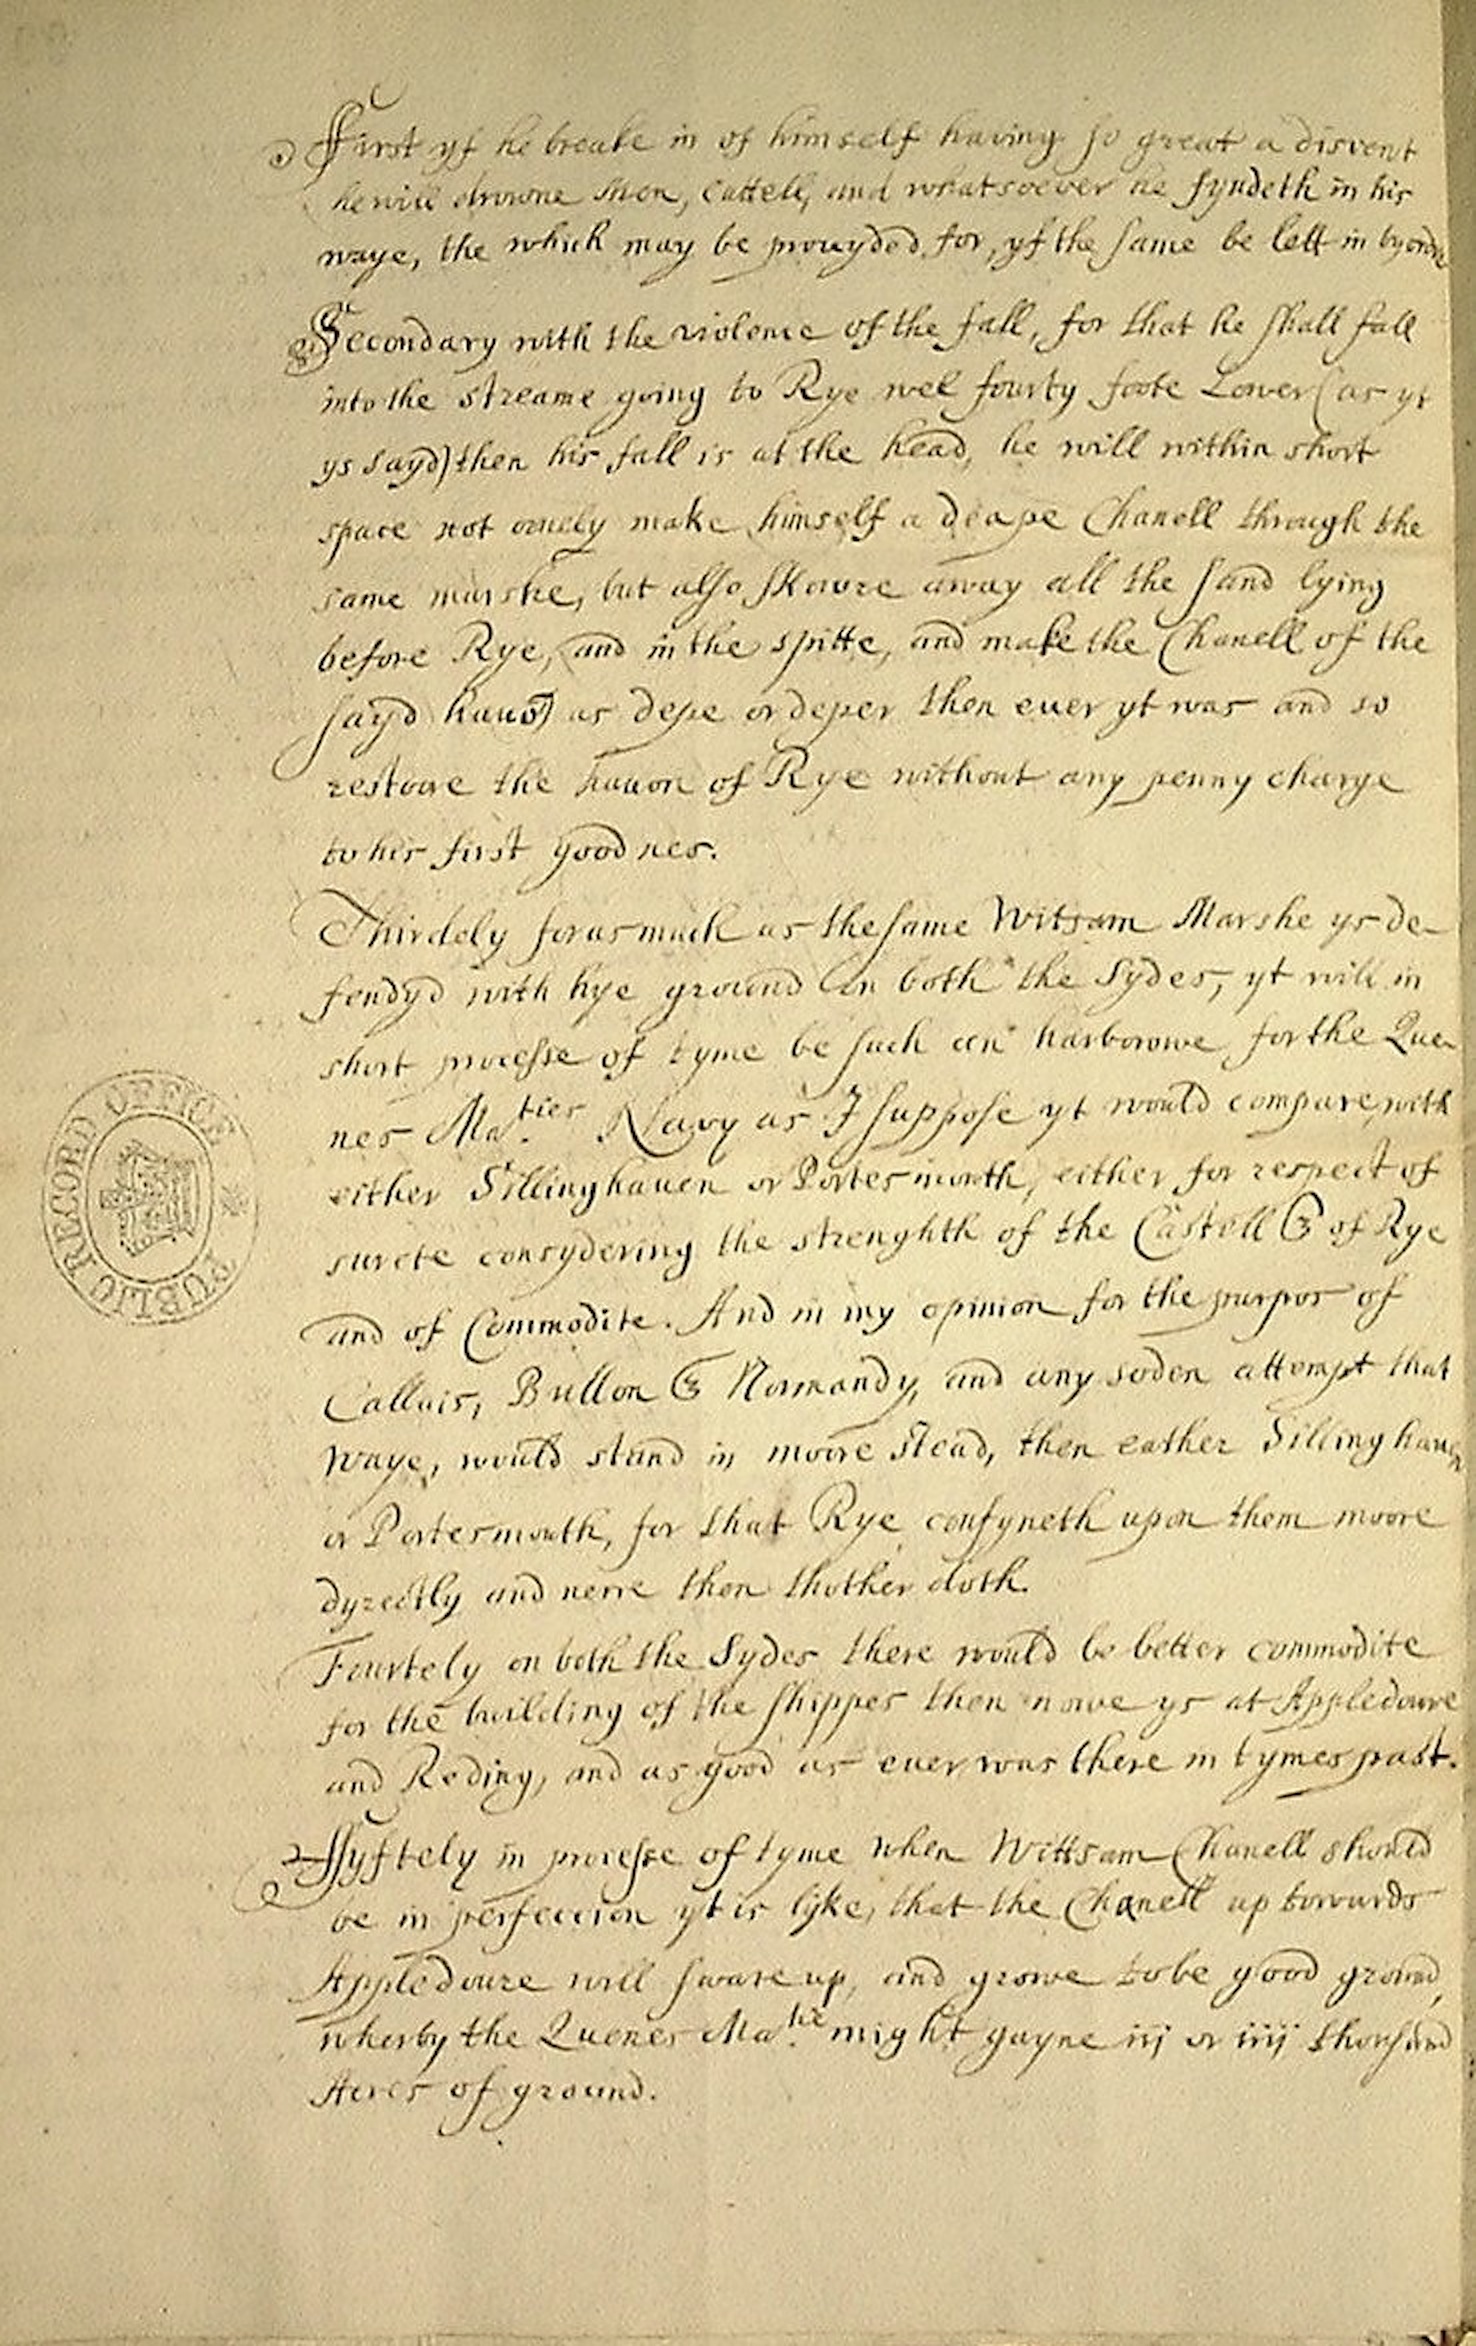 First yf he breake in of himself having so great a discent
he will drowne Men, Cattell, and whatsoever he fyndeth in his
waye, the which may be prouyded for, yf the same be lett in by ordre
Secondary with the violence of the fall, for that he shall fall
into the streame going to Rye wel fourty foote Lower (as yt
ys sayd) then his fall is at the head, he will within short
space not onely make himself a deape Chanell through the
same marshe, but also skowre away all the sand lying
before Rye, and in the spitte, and make the Chanell of the
sayd hauen as depe or deper then euer yt was and so
restore the hauon of Rye without any penny charge
to his first goodnes.
Thirdely forasmuch as the same Witsam Marshe ys de-
fendyd with hye ground on both the sydes, yt will in
short processe of tyme be such an harborowe for the Que-
nes Ma.ties Navy as I suppose yt would compare with
either Gillinghauen or Portesmouth, either for respect of
surete consydering the strenghth of the Castell & of Rye
and of Commodite. And in my opinion for the purpos of
Callais, Bullon & Normandy, and any soden attempt that
waye, would stand in moore stead, then eather Gillinghauen
or Portesmouth, for that Rye confyneth upon them moore
dyrectly and nerre then thother doth.
Fourtely on both the Sydes there would be better commodite
for the building of the shippes then nowe ys at Appledoure
and Reding, and as good as euer was there in tymes past.
Fyftely in processe of tyme when Wittsam Chanell should
be in perfeccion yt is lyke, that the Chanell up towards
Appledoure will swave up, and growe to be good ground,
wherby the Quenes Ma.tie might gayne iij or iiij thousand
Acres of ground.
PUBLIC RECORD OFFICE